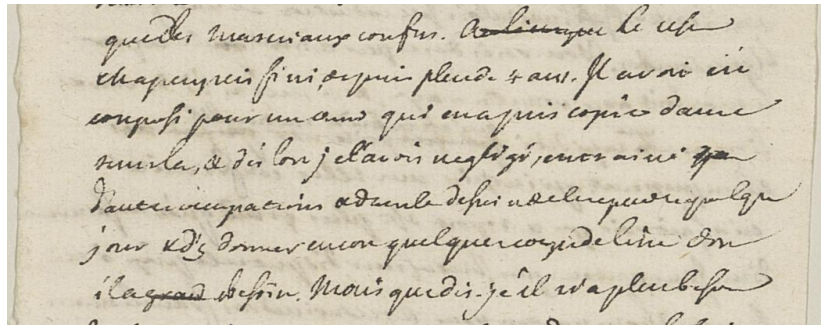 que des materiaux confus. Ce
chap. est fini, depuis plus de 4 ans. Il avoit été
composé pour un ami qui en a pris copie dans
le tems, & dès lors je l'avois negligé, entrainé par
d'autres occupations & dans le dessein de le reprendre quelque
jour & d'y donner encore quelques coups de lime dont
il a grand besoin. Mais que dis-je il n'a plus besoin